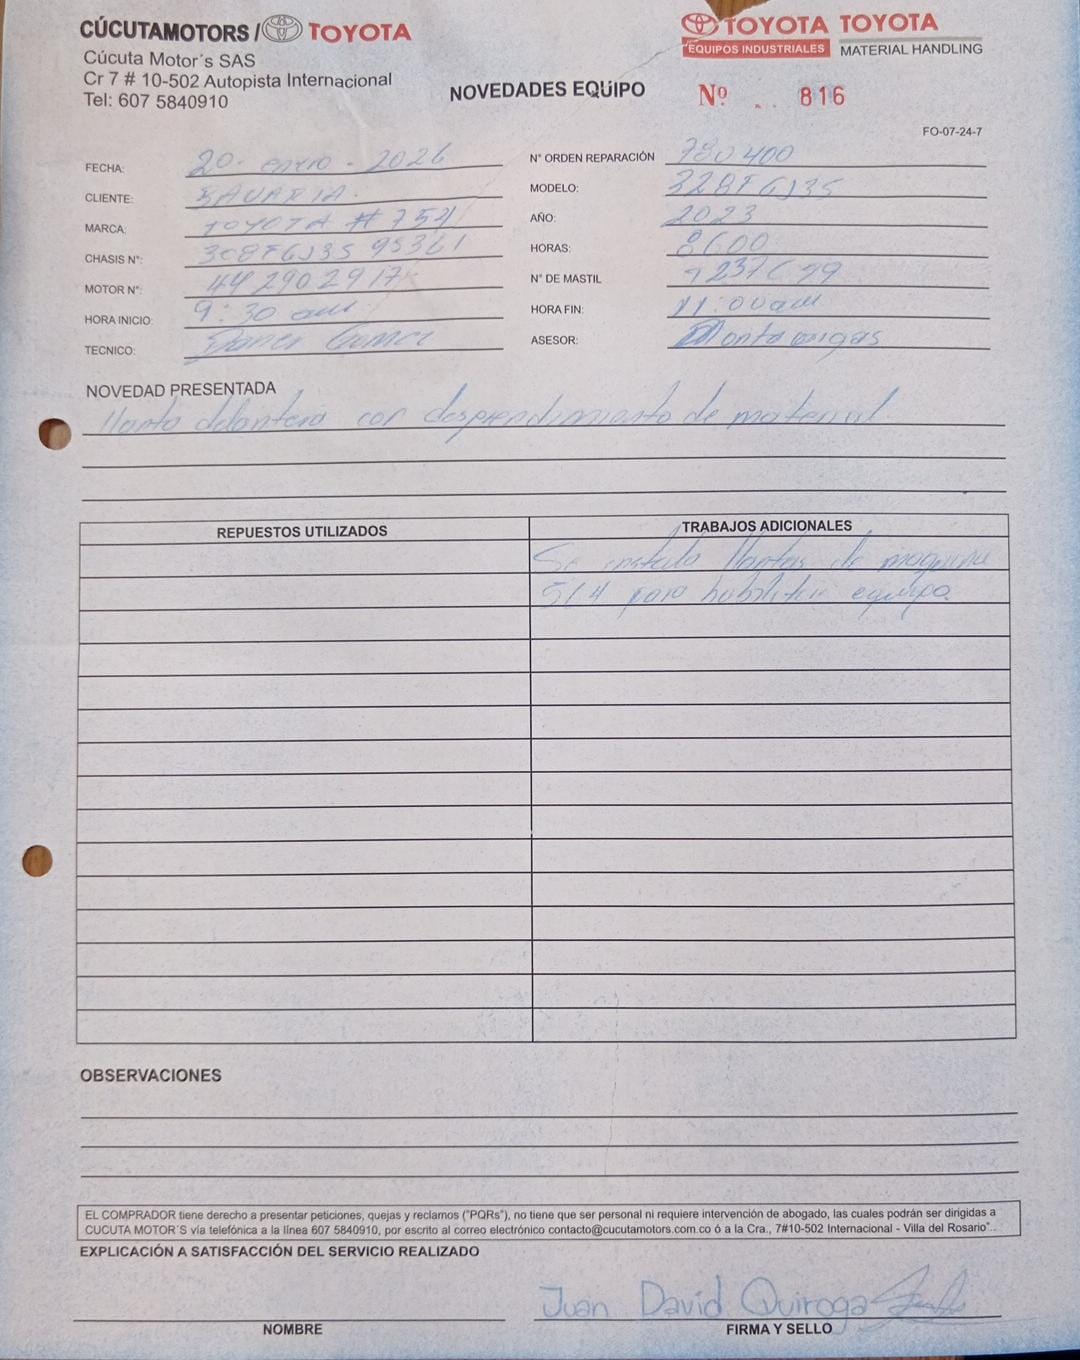 CÚCUTAMOTORS / TOYOTA
Cúcuta Motor´s SAS
Cr 7 # 10-502 Autopista Internacional
Tel: 607 5840910
TOYOTA TOYOTA
EQUIPOS INDUSTRIALES MATERIAL HANDLING
NOVEDADES EQUIPO
Nº 816
FO-07-24-7
FECHA: 20 - enero - 2026
N° ORDEN REPARACIÓN 780400
CLIENTE: BAVARIA.
MODELO: 328FGJ35
MARCA: TOYOTA # 754
AÑO: 2023
CHASIS N°: 308FGJ35 95361
HORAS: 8600
MOTOR N°: 44 2902917
N° DE MASTIL
HORA INICIO: 9:30 am
HORA FIN: 11:00am
TECNICO:
ASESOR: Montavigas
NOVEDAD PRESENTADA
llanta delantera con desprendimiento de material
REPUESTOS UTILIZADOS
TRABAJOS ADICIONALES
Se instala llantas de maquina
514 para habilitar equipo.
OBSERVACIONES
EL COMPRADOR tiene derecho a presentar peticiones, quejas y reclamos ("PQRs"), no tiene que ser personal ni requiere intervención de abogado, las cuales podrán ser dirigidas a
CUCUTA MOTOR´S vía telefónica a la línea 607 5840910, por escrito al correo electrónico contacto@cucutamotors.com.co ó a la Cra., 7#10-502 Internacional - Villa del Rosario"..
EXPLICACIÓN A SATISFACCIÓN DEL SERVICIO REALIZADO
Juan David Quiroga
NOMBRE
FIRMA Y SELLO